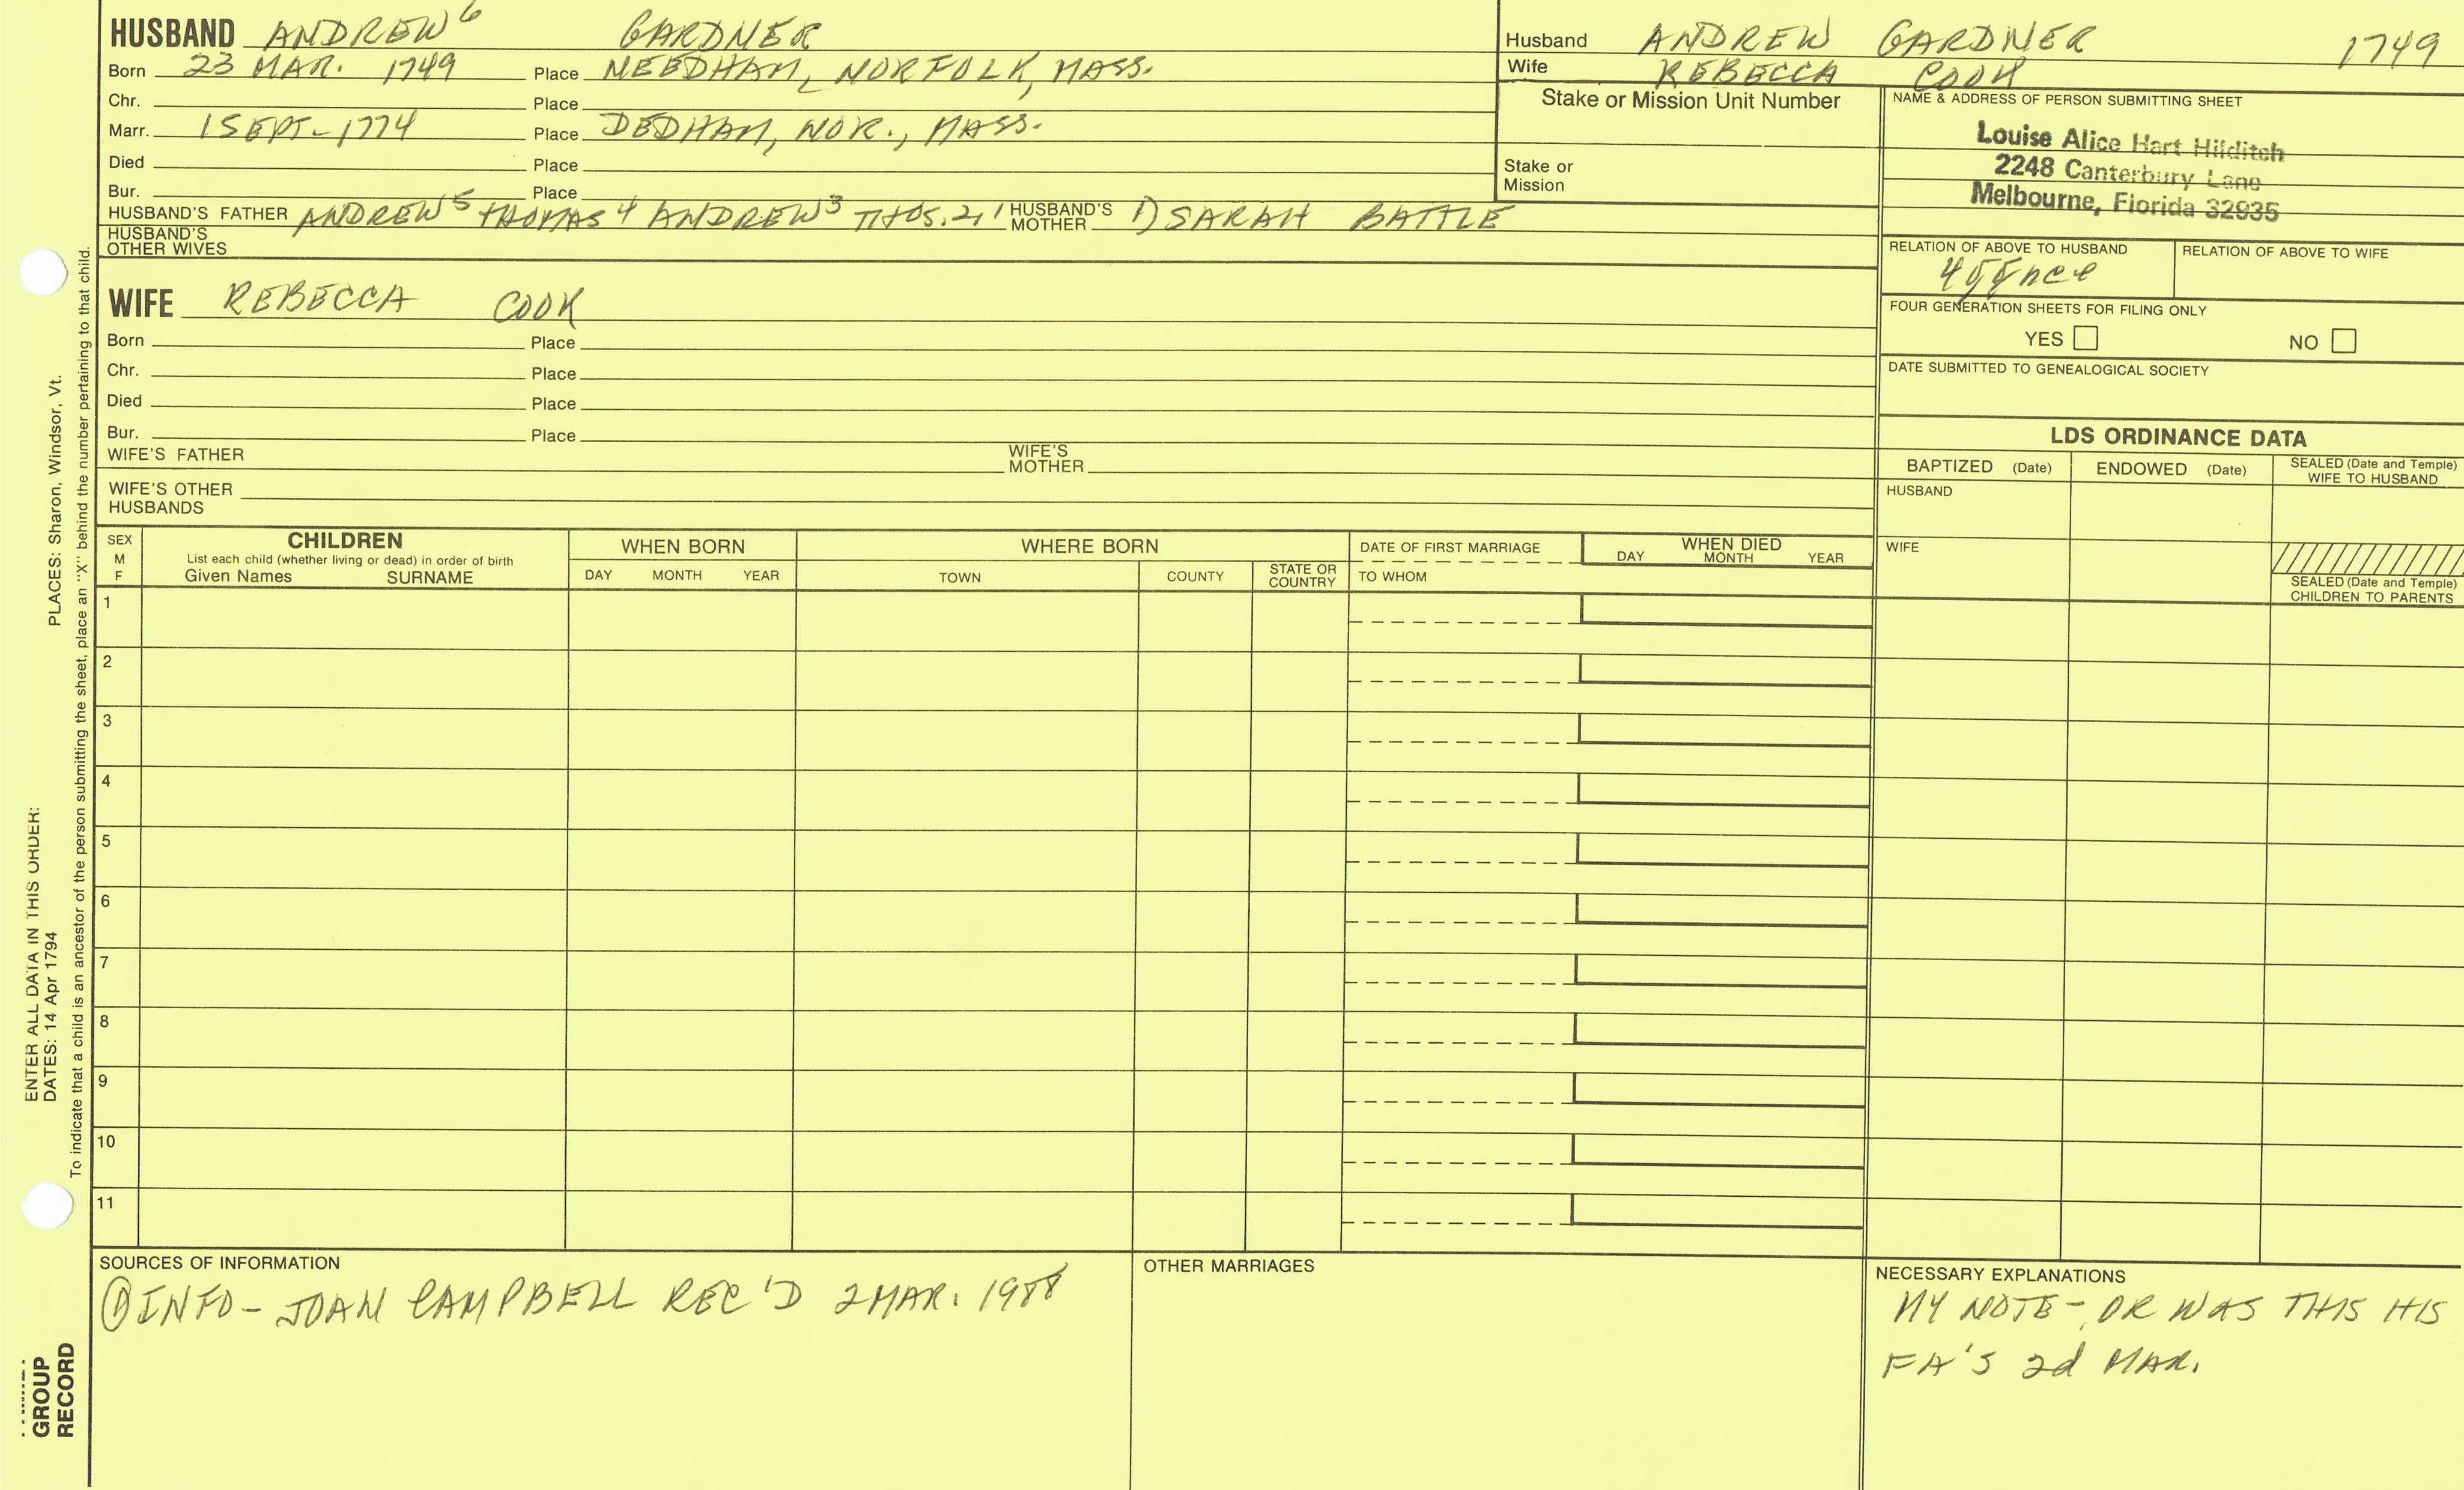 HUSBAND ANDREW⁶ GARDNER
Born 23 MAR. 1749 Place NEEDHAM, NORFOLK, MASS.
Chr. Place
Marr. 1 SEPT. 1774 Place DEDHAM, NOR., MASS.
Died Place
Bur. Place
HUSBAND'S FATHER ANDREW⁵ THOMAS⁴ ANDREW³ THOS.2,1 HUSBAND'S MOTHER 1) SARAH BATTLE
HUSBAND'S OTHER WIVES
Husband ANDREW GARDNER 1749
Wife REBECCA COOK
Stake or Mission Unit Number
Stake or Mission
NAME & ADDRESS OF PERSON SUBMITTING SHEET
Louise Alice Hart Hilditch
2248 Canterbury Lane
Melbourne, Florida 32935
RELATION OF ABOVE TO HUSBAND RELATION OF ABOVE TO WIFE
FOUR GENERATION SHEETS FOR FILING ONLY
YES NO
DATE SUBMITTED TO GENEALOGICAL SOCIETY
WIFE REBECCA COOK
Born Place
Chr. Place
Died Place
Bur. Place
WIFE'S FATHER WIFE'S MOTHER
WIFE'S OTHER HUSBANDS
LDS ORDINANCE DATA
BAPTIZED (Date) ENDOWED (Date) SEALED (Date and Temple) WIFE TO HUSBAND
HUSBAND
WIFE
SEALED (Date and Temple) CHILDREN TO PARENTS
SEX M F
CHILDREN
List each child (whether living or dead) in order of birth
Given Names SURNAME
WHEN BORN
DAY MONTH YEAR
WHERE BORN
TOWN COUNTY STATE OR COUNTRY
DATE OF FIRST MARRIAGE
TO WHOM
WHEN DIED
DAY MONTH YEAR
1
2
3
4
5
6
7
8
9
10
11
SOURCES OF INFORMATION
① INFO - JOAN CAMPBELL REC'D 2 MAR. 1988
OTHER MARRIAGES
NECESSARY EXPLANATIONS
MY NOTE - OR WAS THIS HIS
FA'S 2d MAR.
ENTER ALL DATA IN THIS ORDER:
DATES: 14 Apr 1794 PLACES: Sharon, Windsor, Vt.
To indicate that a child is an ancestor of the person submitting the sheet, place an "X" behind the number pertaining to that child.
GROUP
RECORD